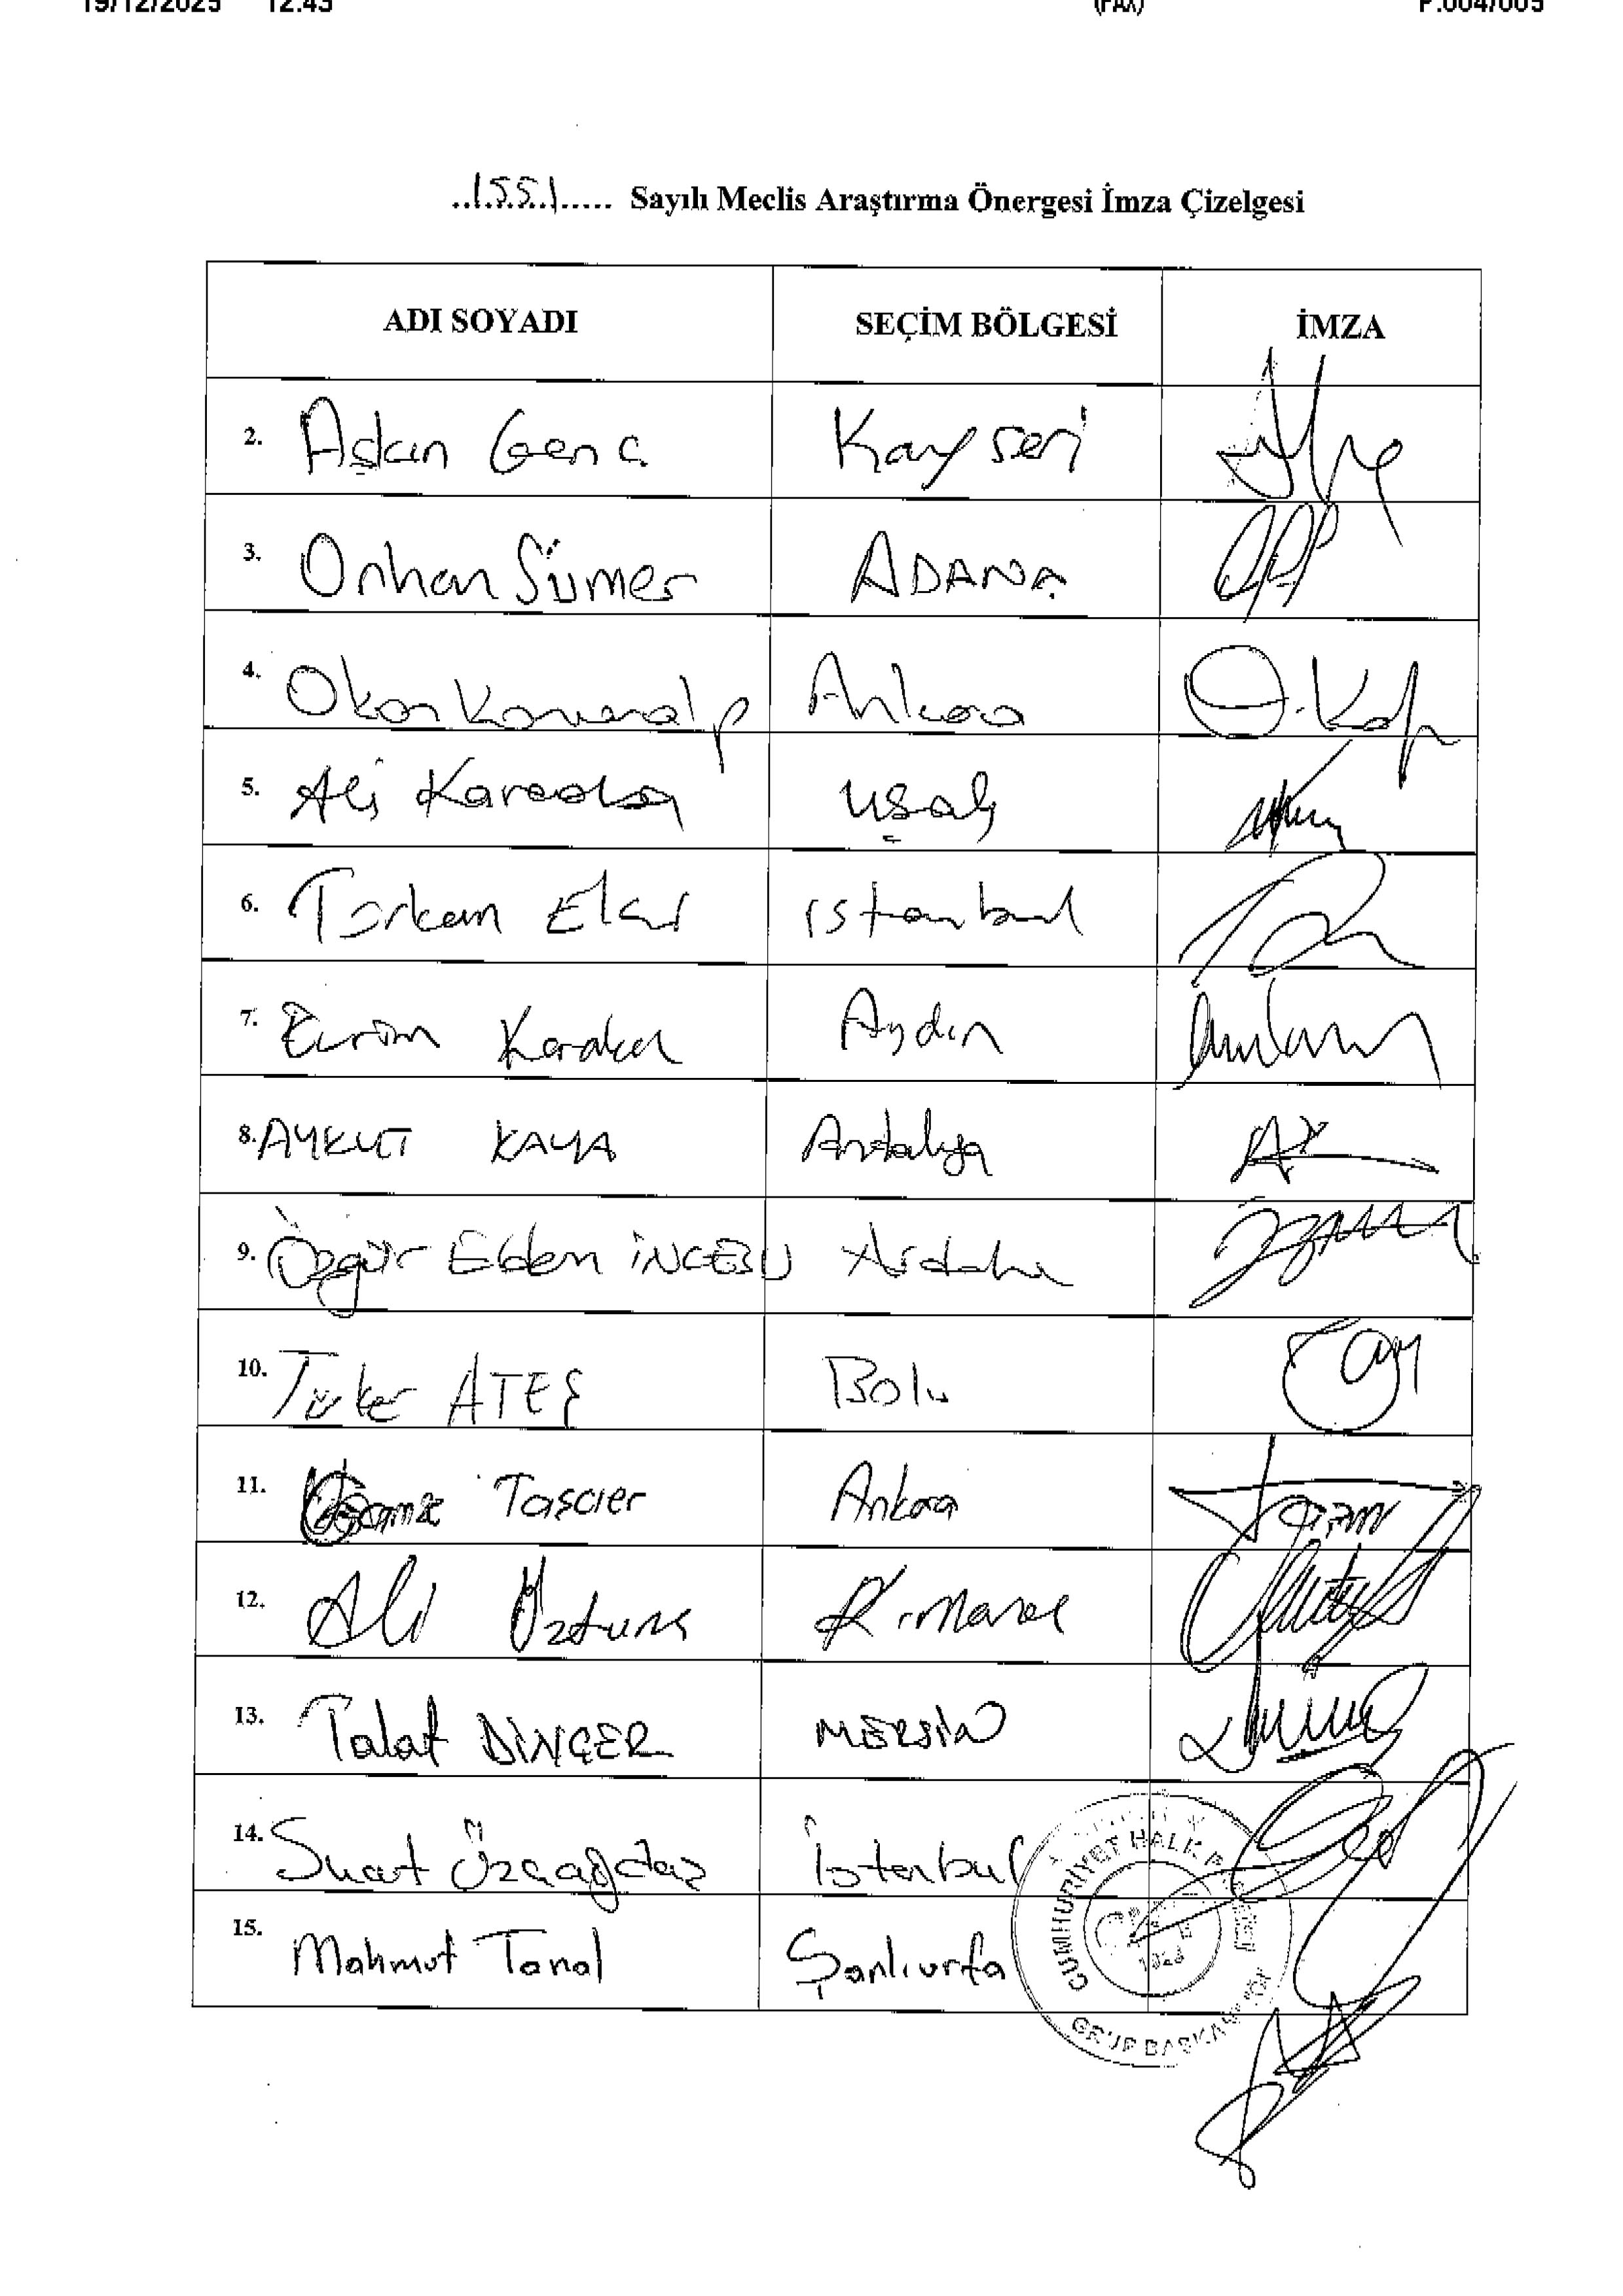 19/12/2025 12:43 (FAX) P.004/005
..1551..... Sayılı Meclis Araştırma Önergesi İmza Çizelgesi
ADI SOYADI SEÇİM BÖLGESİ İMZA
2. Aşkın Genç Kayseri
3. Orhan Sümer ADANA
4. Okan Konuralp Ankara
5. Ali Karaoba uşak
6. Türkan Elçi istanbul
7. Evrim Karakoz Aydın
8. AYKUT KAYA Antalya
9. Özgür Erdem İNCESU Ardahan
10. Türker ATEŞ Bolu
11. Taşcıer Ankara
12. Ali Öztunç K.maraş
13. Talat DİNÇER MERSİN
14. Suat Özçağdaş İstanbul
15. Mahmut Tanal Şanlıurfa
CUMHURİYET HALK PARTİSİ
1923
GRUP BAŞKANLIĞI